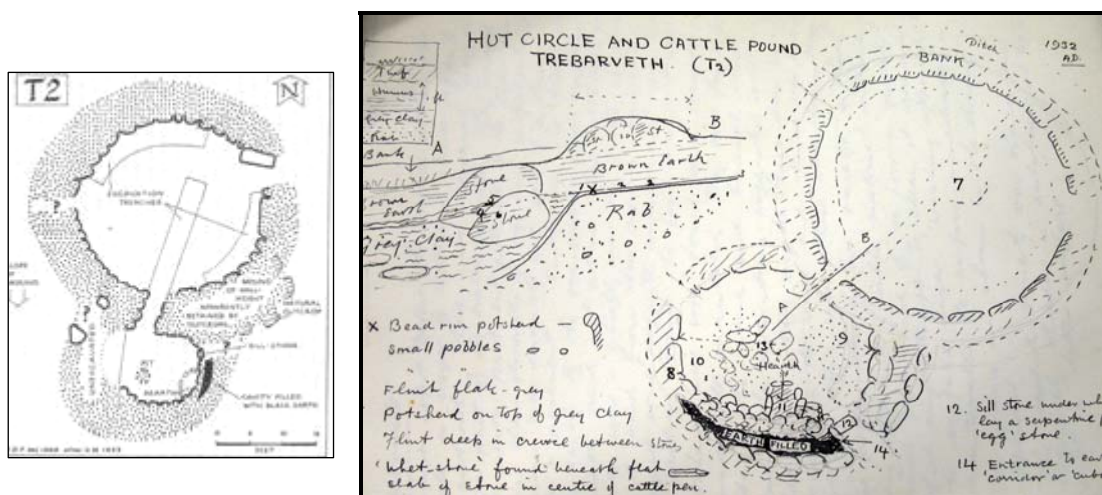 T2
N
EXCAVATION
TRENCHES
?
SLOPE
OF
GROUND
MOUND
OF SMALL
HEIGHT
APPARENTLY
RETAINED BY
OUTCROP
NATURAL
OUTCROP
?
?
UNEXCAVATED
PIT
SILL-STONE
HEARTH
CAVITY FILLED
WITH BLACK EARTH
FEET
HUT CIRCLE AND CATTLE POUND
TREBARVETH. (T2)
1932
A.D.
Ditch
BANK
Turf
Humus
Grey Clay
Rab
Bank
A
B
St.
Stone
Stone
Brown Earth
Brown Earth
Grey Clay
Rab
X
7
B
A
13
Hearth
10
8
9
11
12
EARTH FILLED
14.
X Bead rim potsherd –
Small pebbles o o
Flint flake - grey
Potsherd on Top of grey Clay
Flint deep in crevice between stones
'Whet-stone' found beneath flat
slab of stone in centre of cattle pen.
12. Sill stone under
lay a serpentine
'egg' stone.
14 Entrance to
'corridor' or